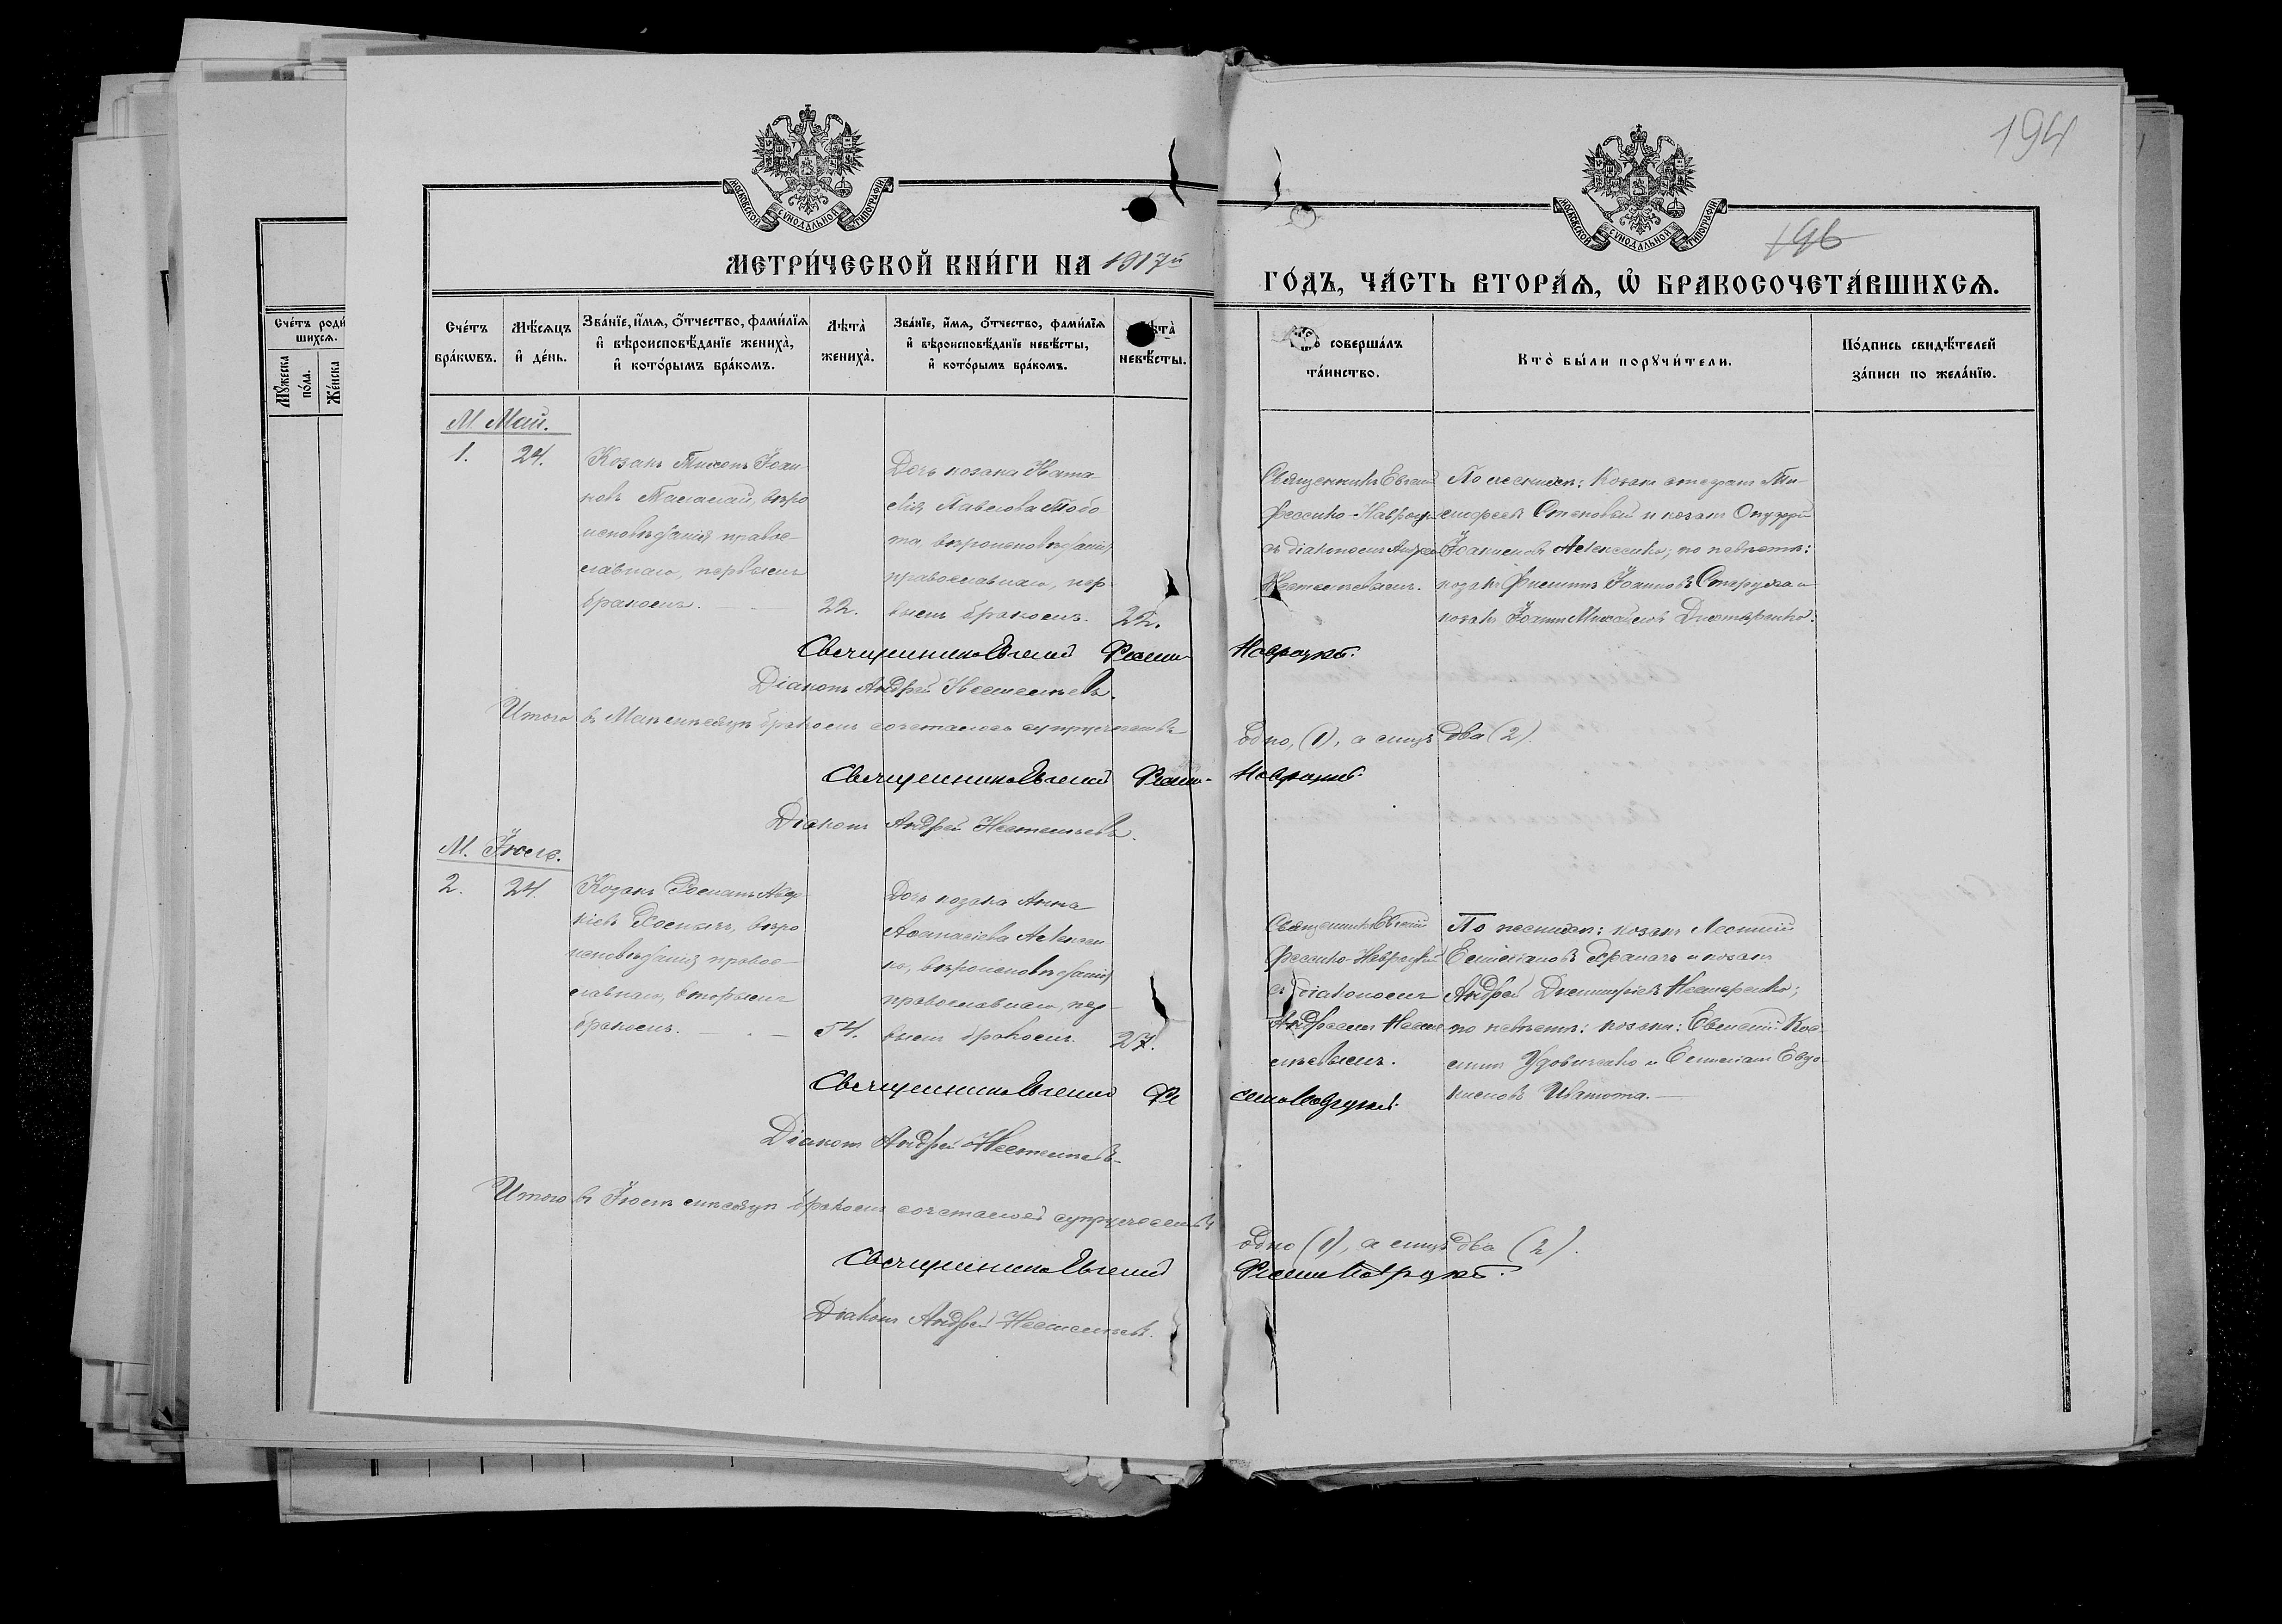 194
196
МОСКОВСКОЙ СΥНОДАЛЬНОЙ ТИПОГРАФІИ
МОСКОВСКОЙ СΥНОДАЛЬНОЙ ТИПОГРАФІИ
МЕТРИ́ЧЕСКОЙ КНИ́ГИ НА 1917й
ГО́ДЪ, ЧА́СТЬ ВТОРА́Ѧ, Ѽ БРАКОСОЧЕТА́ВШИХСѦ.
Сче́тъ роди
шихсѧ.
Мꙋ́жеска
по́ла.
Же́нска
Сче́тъ
бра́кѡвъ.
Мѣ́сѧцъ
и҆ де́нь.
Зва́нїе, и҆́мѧ, ѻ҆́тчество, фами́лїѧ
и҆ вѣроисповѣ́данїе жениха̀,
и҆ кото́рымъ бра́комъ.
Лѣ́та̀
жениха̀.
Зва́нїе, и҆́мѧ, ѻ҆́тчество, фами́лїѧ
и҆ вѣроисповѣ́данїе невѣ́сты,
и҆ кото́рымъ бра́комъ.
невѣ́сты.
соверша́лъ
та́инство.
Кто̀ бы́ли порꙋчи́тели.
По́дпись свидѣ́телей
за́писи по жела́нїю.
М. Май.
1.
24.
Козакъ Іоан-
новъ веро
исповѣданія правос-
славнаго, первымъ
бракомъ.
22.
Дочь козака Ната-
лія Павлова
та, вѣроисповѣданія
православнаго, пер-
вымъ бракомъ.
22.
Священникъ Евгеній
Фесенко-Навроцкій
съ діакономъ Андре
По женихѣ: козакъ
и козакъ
Іоакимовъ Алексенко; по невѣстѣ:
козакъ Филиппъ и
козакъ Іоаннъ Михайловъ
Священникъ Евгеній Фесенко-Навроцкій.
Діаконъ Андрей
Итого въ Маѣ мѣсяцѣ бракомъ сочеталось супружествъ
одно, (1), а лицъ два (2).
Священникъ Евгеній Фесенко-Навроцкій.
Діаконъ Андрей
М. Іюль.
2.
24.
Козакъ Романъ
вѣро
исповѣданія правос-
славнаго, вторымъ
бракомъ.
54.
Дочь козака Анна
Аѳанасіева Алексен
ко, вѣроисповѣданія
православнаго, пер-
вымъ бракомъ.
27.
Священникъ Евгеній
Фесенко-Навроцкій
съ діакономъ
Андреемъ
По женихѣ: козакъ Леонтій
и козакъ
Андрей Димитріевъ Нестеренко;
по невѣстѣ: козаки: Евгеній Кос-
Удовиченко и Евдо-
кимовъ
Священникъ Евгеній Фесенко-Навроцкій.
Діаконъ Андрей
Итого въ Іюлѣ мѣсяцѣ бракомъ сочеталось супружествъ
одно (1), а лицъ два (2).
Священникъ Евгеній Фесенко-Навроцкій.
Діаконъ Андрей